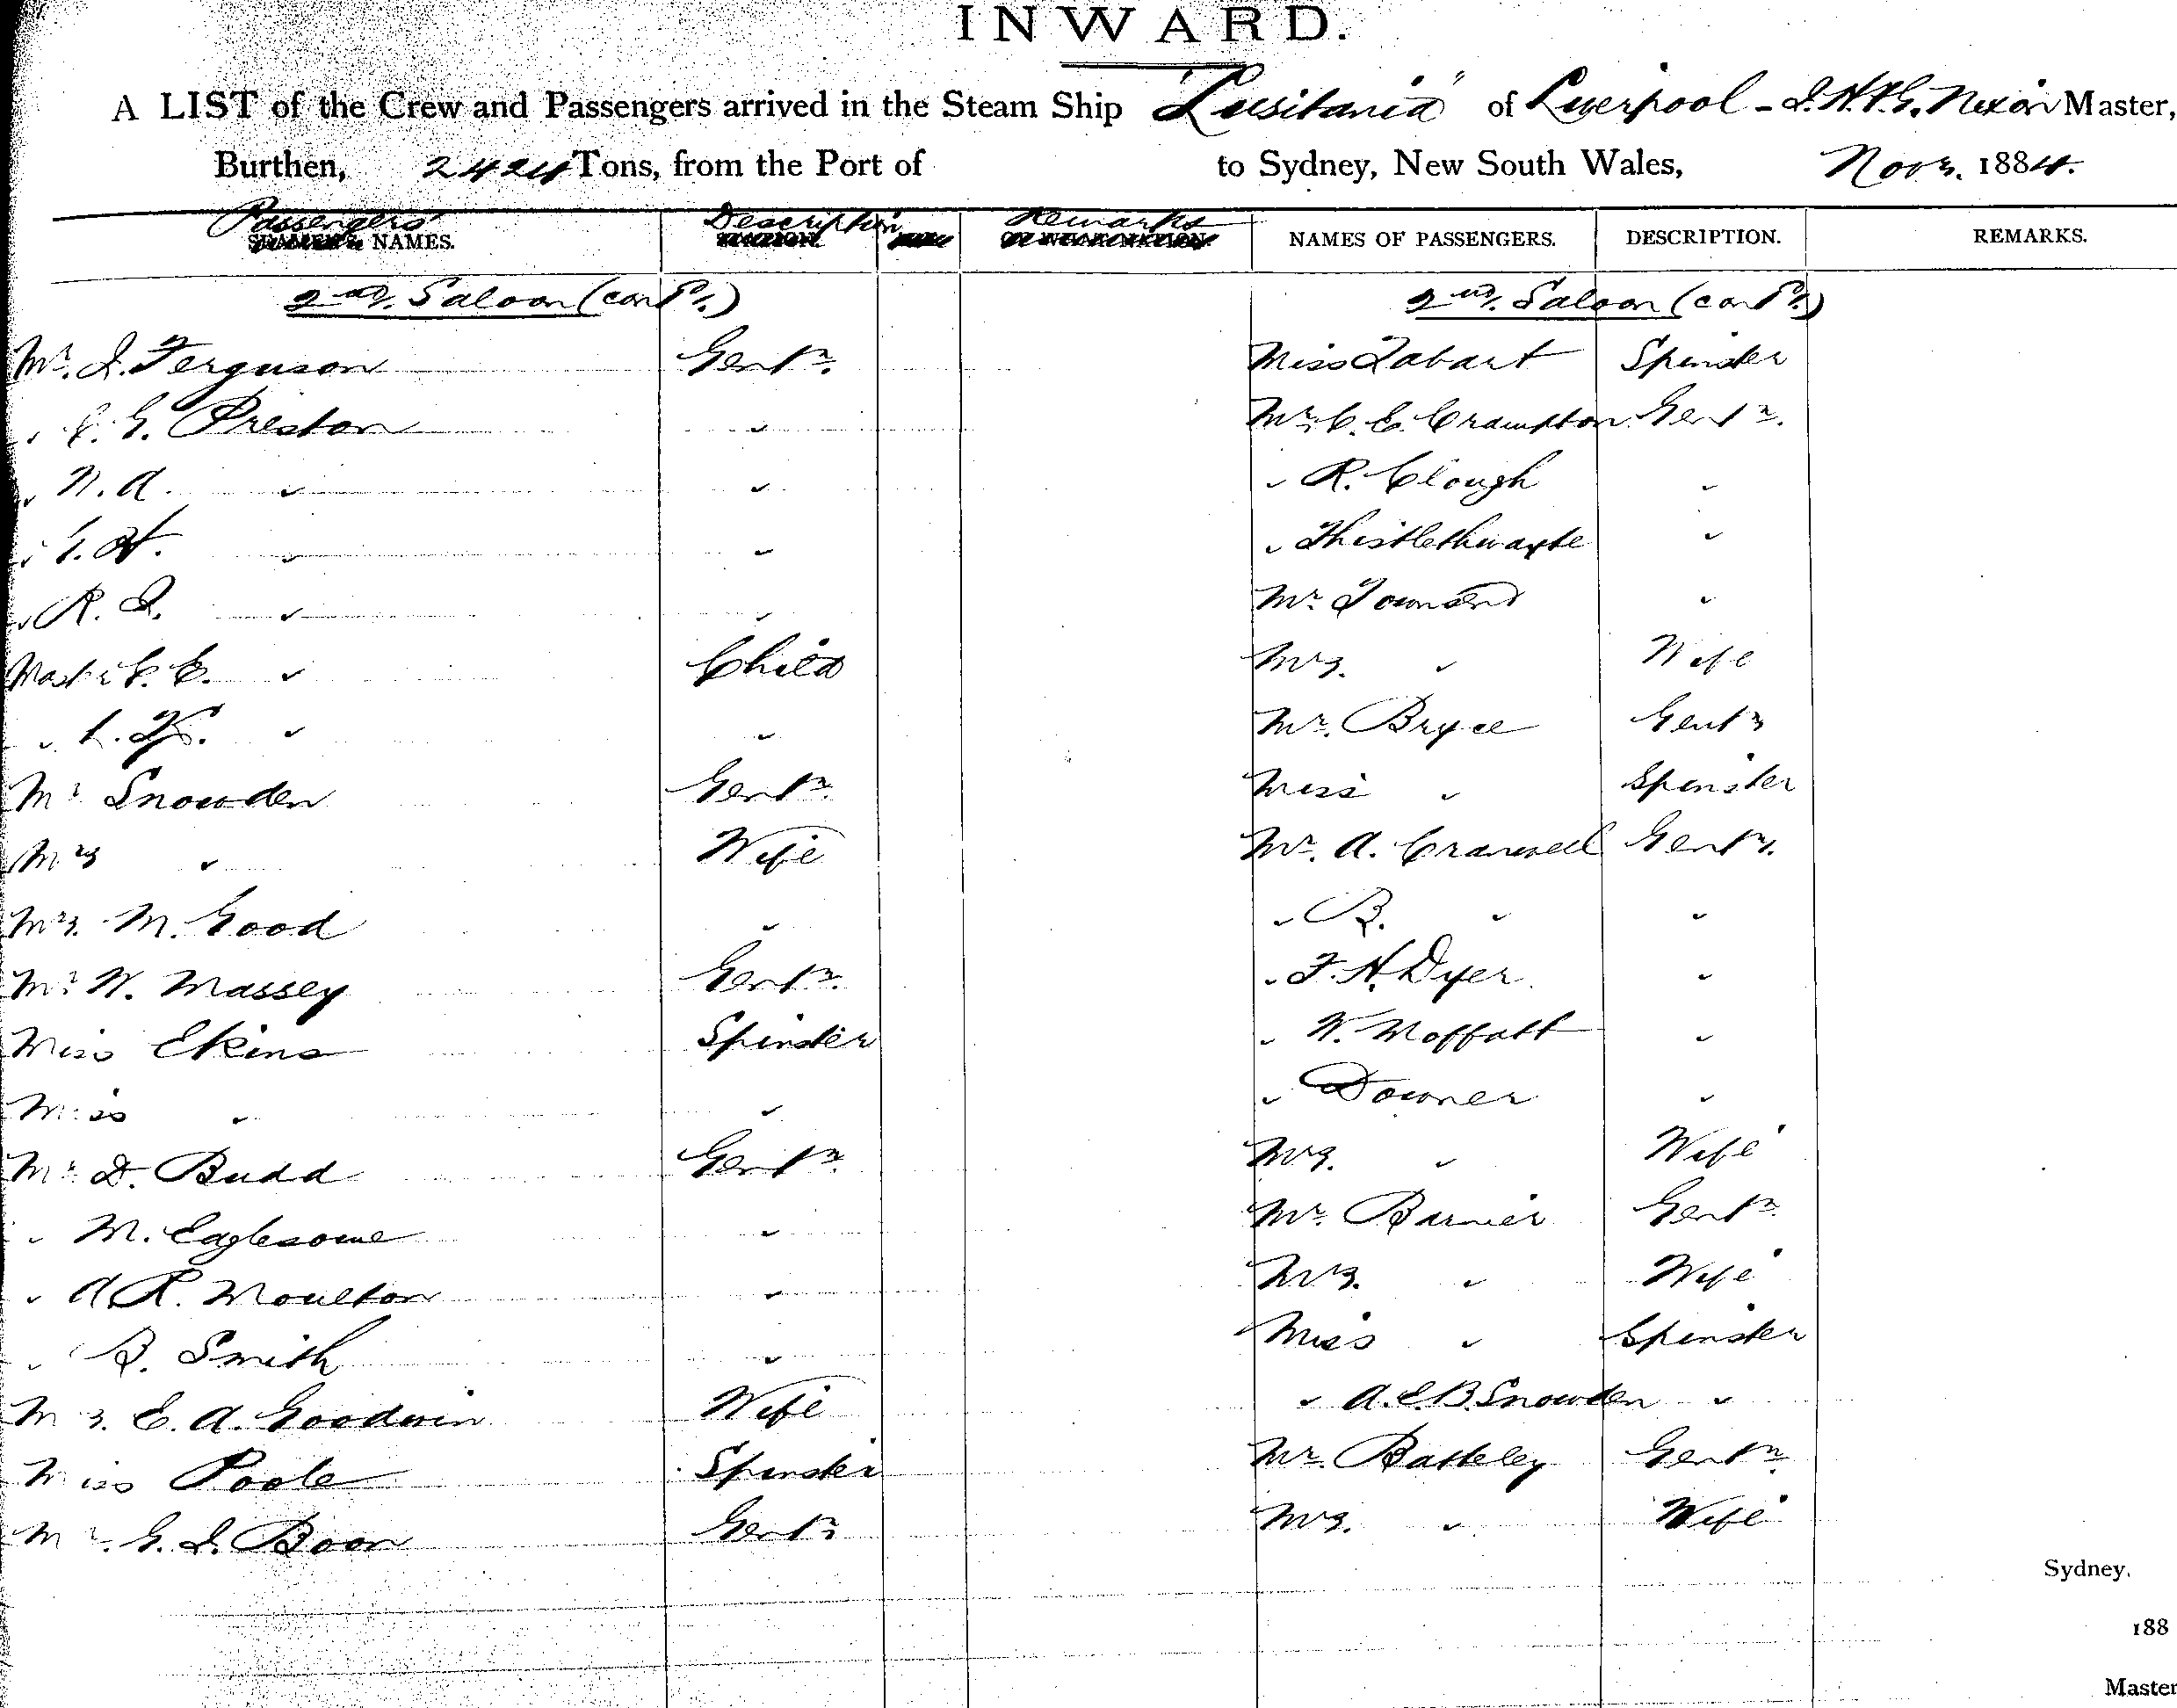 INWARD.
A LIST of the Crew and Passengers arrived in the Steam Ship "Lusitania" of Liverpool - Nixon Master,
Burthen, 2424 Tons, from the Port of to Sydney, New South Wales, Nov 3. 1884.
Passengers' NAMES. Description Remarks NAMES OF PASSENGERS. DESCRIPTION. REMARKS.
2nd. Saloon (contd.)
Mr. J. Ferguson Gentn.
" C. G. Preston "
" N. A. " "
" G. H. " "
" R. J. " "
Mastr C. E. " Child
" " "
Mr Snowden Gentn.
Mrs " Wife
Mrs. M. Good "
Mr W. Massey Gentn.
Miss Ekins Spinster
Miss " "
Mr D. Budd Gentn.
" M. Eaglesome "
" A. R. Moulton "
" B. Smith "
Mrs. E. A. Goodwin Wife
Miss Poole Spinster
Mr. G. J. Boon Gentn
2nd. Saloon (contd.)
Miss Tabart Spinster
Mr. C. E. Crampton Gentn.
" R. Clough "
" Thistlethwayte "
Mr. Townsend "
Mrs. " Wife
Mr. Bryce Gentn
Miss " Spinster
Mr. A. Cranwell Gentn.
" B. " "
" F. H. Dyer "
" W. Moffatt "
" Downer "
Mrs. " Wife
Mr. Barnier Gentn
Mrs. " Wife
Miss " Spinster
" A. E. B. Snowden "
Mr. Batteley Gentn
Mrs. " Wife
Sydney.
188
Master